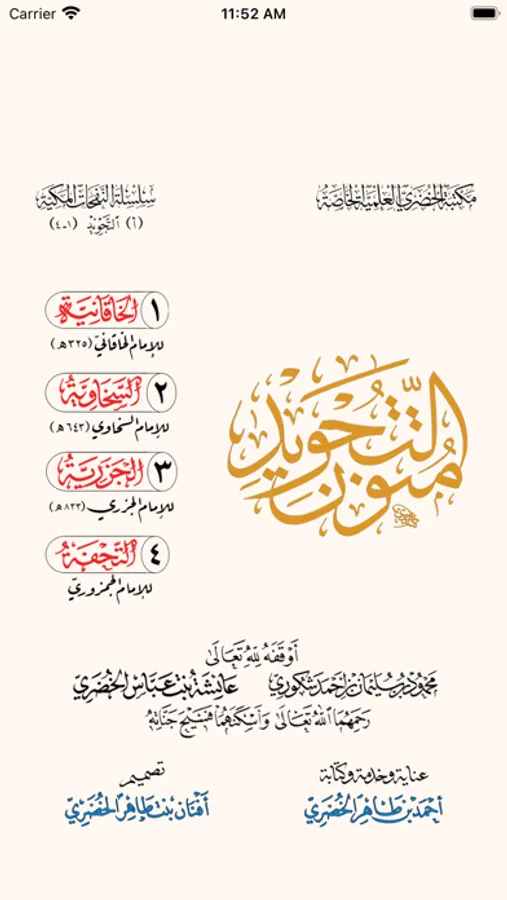 Carrier 11:52 AM
مكتبة الخضري العلمية الخاصة
سلسلة النفحات المكية
(٦) التجويد (١-٤)
متون التجويد
١ الخاقانية
للإمام الخاقاني (٣٢٥هـ)
٢ السخاوية
للإمام السخاوي (٦٤٣هـ)
٣ الجزرية
للإمام الجزري (٨٣٣هـ)
٤ التحفة
للإمام الجمزوري
أوقفه لله تعالى
محمود بن سليمان بن أحمد شكوري عائشة بنت عباس الخضري
رحمهما الله تعالى وأسكنهما فسيح جناته
عناية وخدمة وكتابة
أحمد بن طاهر الخضري
تصميم
أفنان بنت طاهر الخضري